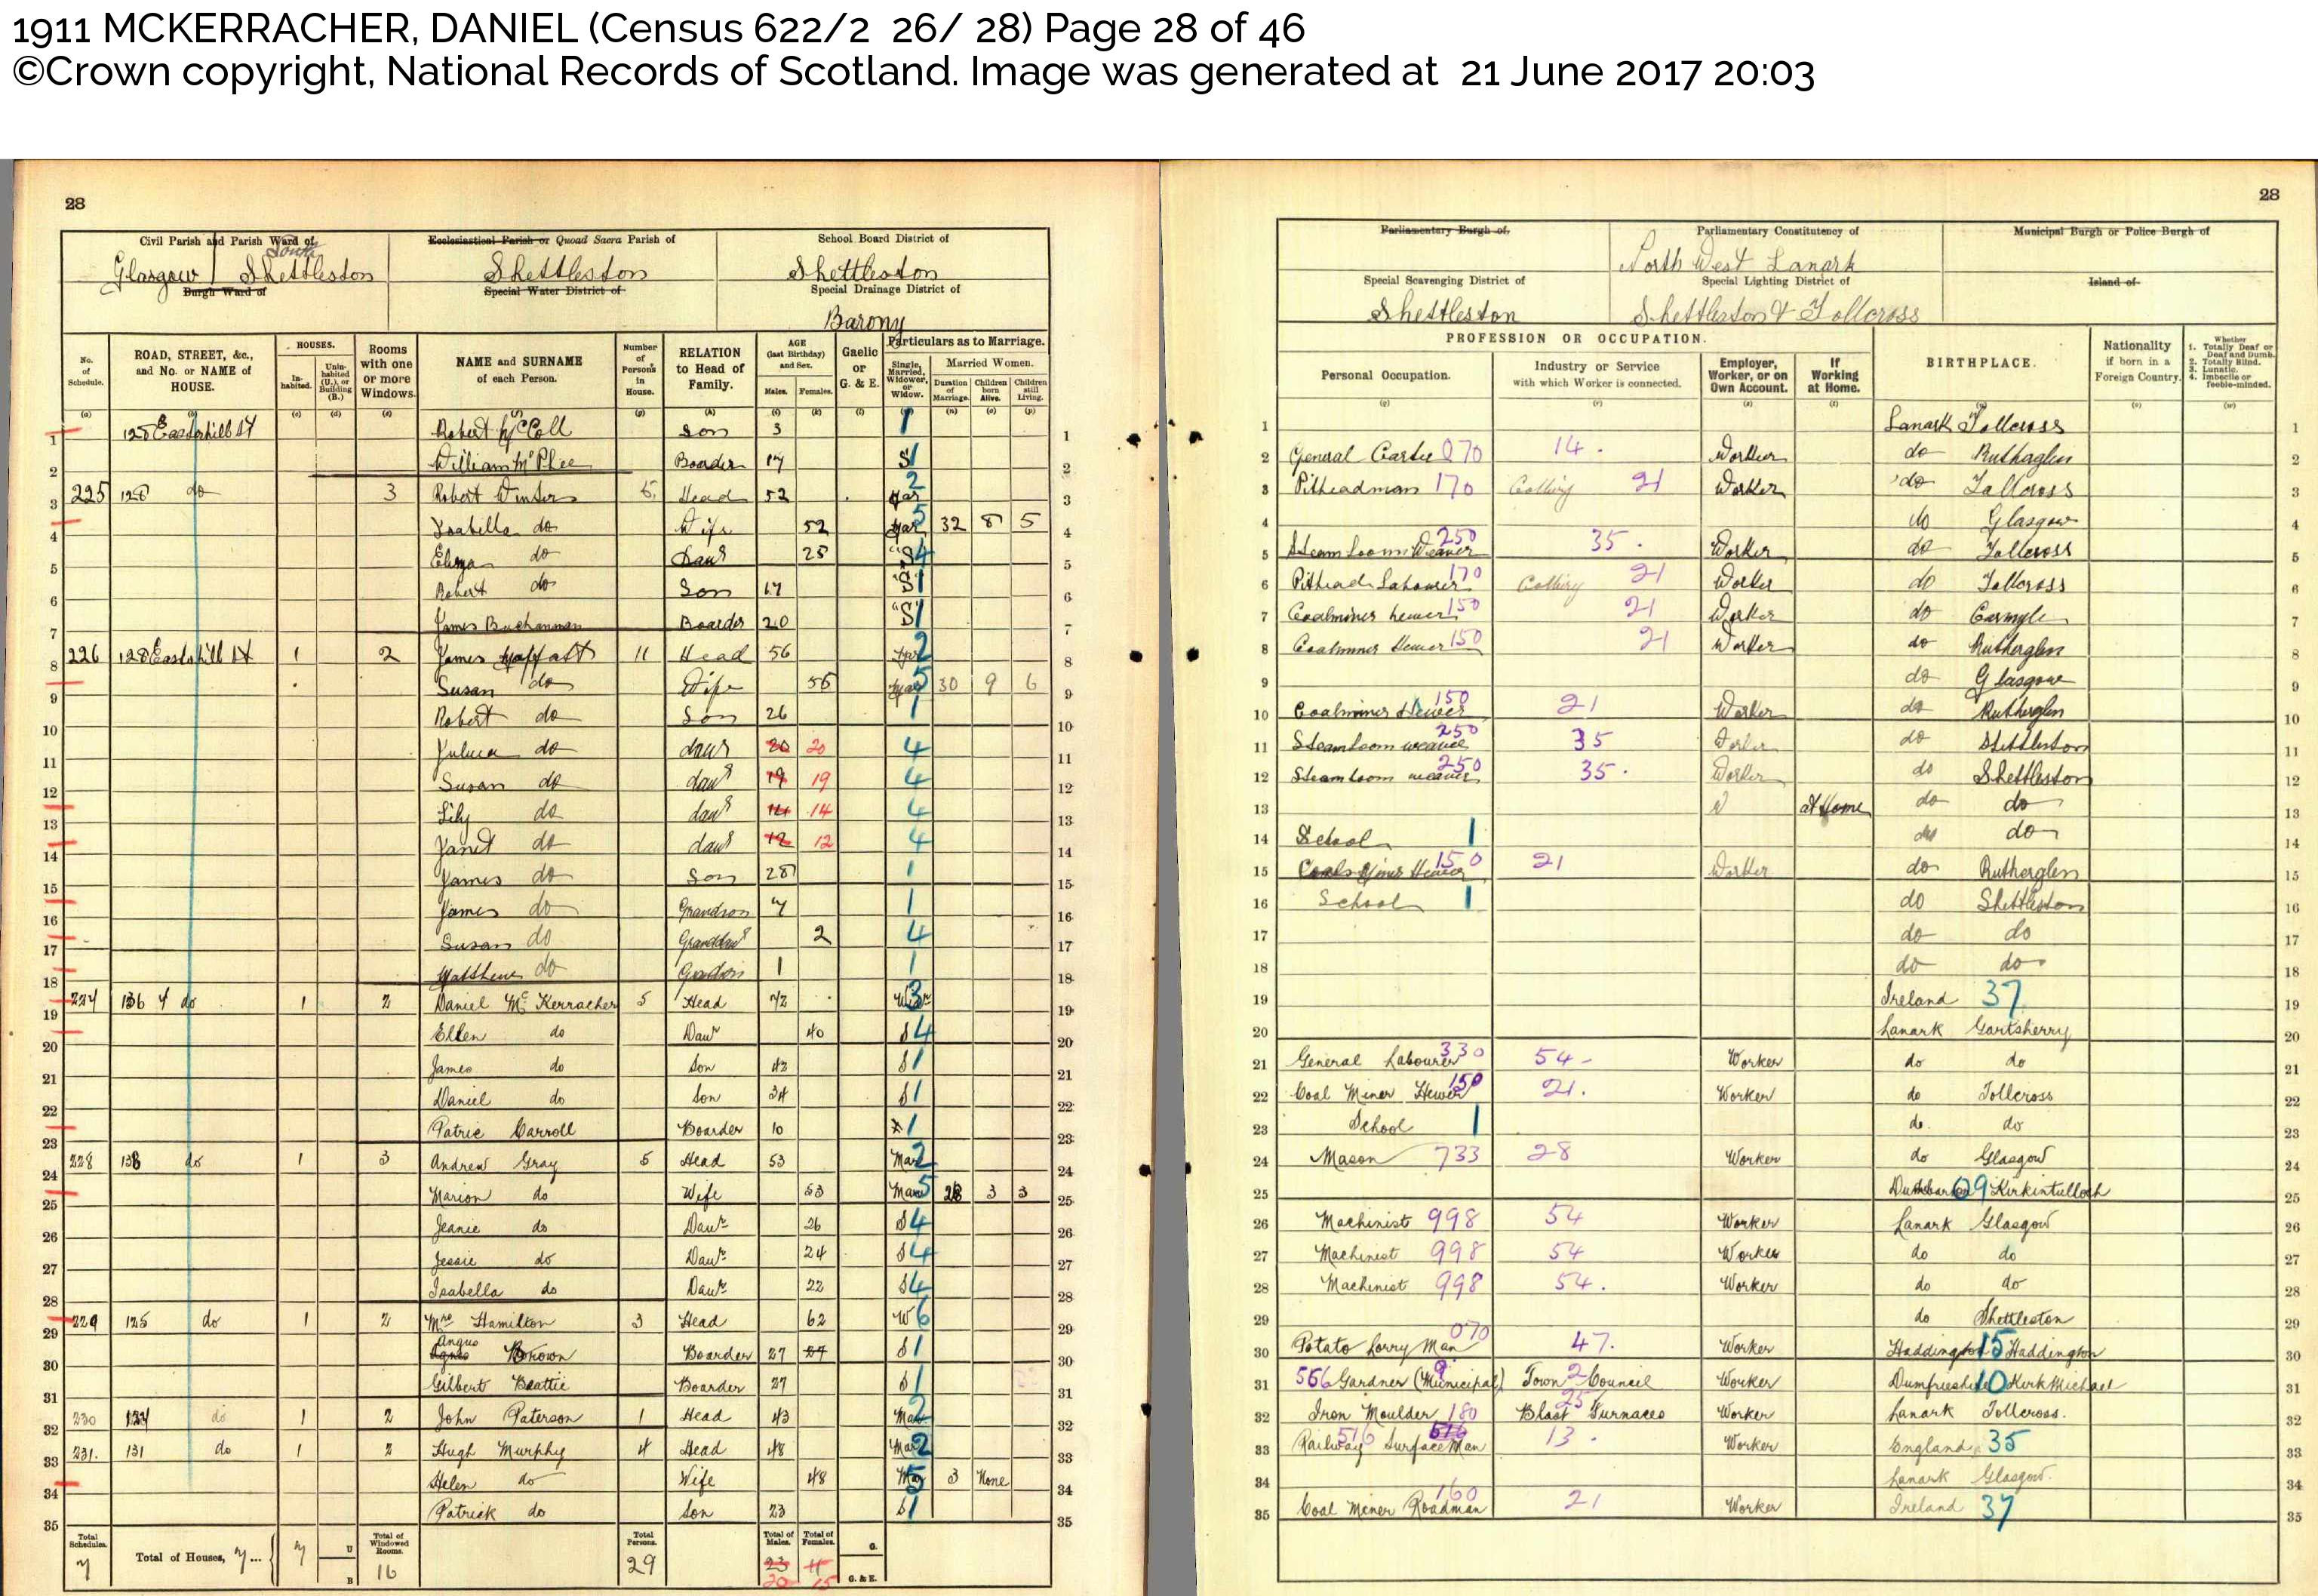 1911 MCKERRACHER, DANIEL (Census 622/2 26/ 28) Page 28 of 46
©Crown copyright, National Records of Scotland. Image was generated at 21 June 2017 20:03
28
28
Civil Parish and Parish Ward of
Ecclesiastical Parish or Quoad Sacra Parish of
School Board District of
South
Glasgow Shettleston
Shettleston
Shettleston
Burgh Ward of
Special Water District of
Special Drainage District of
Barony
Parliamentary Burgh of
Parliamentary Constitutency of
Municipal Burgh or Police Burgh of
North West Lanark
Special Scavenging District of
Special Lighting District of
Island of
Shettleston
Shettleston & Tollcross
No. of Schedule.
ROAD, STREET, &c., and No. or NAME of HOUSE.
HOUSES.
Inhabited.
Uninhabited (U.), or Building (B.)
Rooms with one or more Windows.
NAME and SURNAME of each Person.
Number of Persons in House.
RELATION to Head of Family.
AGE (last Birthday) and Sex.
Males. Females.
Gaelic or G. & E.
Particulars as to Marriage.
Single, Married, Widower, or Widow.
Married Women.
Duration of Marriage. Children born Alive. Children still Living.
PROFESSION OR OCCUPATION.
Personal Occupation.
Industry or Service with which Worker is connected.
Employer, Worker, or on Own Account.
If Working at Home.
BIRTHPLACE.
Nationality if born in a Foreign Country.
Whether
1. Totally Deaf or Deaf and Dumb.
2. Totally Blind.
3. Lunatic.
4. Imbecile or feeble-minded.
1 128 Easterhill St Robert McColl Son 3 1 Lanark Tollcross
2 William McPhee Boarder 17 S 1 General Carter 070 14 Worker do Rutherglen
3 225 128 do 3 Robert Winters 5 Head 52 Mar 2 Pitheadman 170 Colliery 21 Worker do Tollcross
4 Isabella do Wife 52 Mar 5 32 8 5 do Glasgow
5 Eliza do Daur 25 S 4 Steam Loom Weaver 250 35 Worker do Tollcross
6 Robert do Son 17 S 1 Pithead Labourer 170 Colliery 21 Worker do Tollcross
7 James Buchannan Boarder 20 S 1 Coalminer hewer 150 21 Worker do Carmyle
8 226 128 Easterhill St 1 2 James Moffatt 11 Head 56 Mar 2 Coalminer Hewer 150 21 Worker do Rutherglen
9 Susan do Wife 56 Mar 5 30 9 6 do Glasgow
10 Robert do Son 26 1 Coalminer Hewer 150 21 Worker do Rutherglen
11 do daur 20 20 4 Steamloom weaver 250 35 Worker do Shettleston
12 Susan do daur 19 19 4 Steam loom weaver 250 35 Worker do Shettleston
13 Lily do daur 14 14 4 at Home do do
14 Janet do daur 12 12 4 School 1 do do
15 James do Son 28 1 Coal Miner Hewer 150 21 Worker do Rutherglen
16 James do Grandson 7 1 School 1 do Shettleston
17 Susan do Granddaur 2 4 do do
18 Matthew do Grandson 1 1 do do
19 227 136 do 1 2 Daniel McKerracher 5 Head 72 Widr 3 Ireland 37
20 Ellen do Daur 40 S 4 Lanark Gartsherry
21 James do Son 42 S 1 General Labourer 330 54 Worker do do
22 Daniel do Son 34 S 1 Coal Miner Hewer 150 21. Worker do Tollcross
23 Patric Carroll Boarder 10 x 1 School 1 do. do
24 228 138 do 1 3 Andrew Gray 5 Head 53 Mar 2 Mason 733 28 Worker do Glasgow
25 Marion do Wife 53 Mar 5 28 3 3 Dumbarton 09 Kirkintulloch
26 Jeanie do Daur 26 S 4 Machinist 998 54 Worker Lanark Glasgow
27 Jessie do Daur 24 S 4 Machinist 998 54 Worker do do
28 Isabella do Daur 22 S 4 Machinist 998 54. Worker do do
29 229 125 do 1 2 Mrs Hamilton 3 Head 62 W 6 do Shettleston
30 Agnes Angus Brown Boarder 27 27 S 1 Potato Lorry Man 070 47. Worker Haddington 15 Haddington
31 Gilbert Beattie Boarder 27 S 1 566 Gardner (Municipal) Town Council Worker Dumfriesshire 10 KirkMichael
32 230 127 do 1 2 John Paterson 1 Head 43 Mar 2 Iron Moulder 180 Blast Furnaces 25 Worker Lanark Tollcross.
33 231. 131 do 1 2 Hugh Murphy 4 Head 48 Mar 2 Railway Surface Man 516 13 Worker England 35
34 Helen do Wife 48 Mar 5 3 None Lanark Glasgow.
35 Patrick do Son 23 S 1 Coal Miner Roadman 160 21 Worker Ireland 37
Total Schedules. 7
Total of Houses, 7 ... 7 U B
Total of Windowed Rooms. 16
Total Persons. 29
Total of Males. 23 20
Total of Females. 11 15
G.
G. & E.